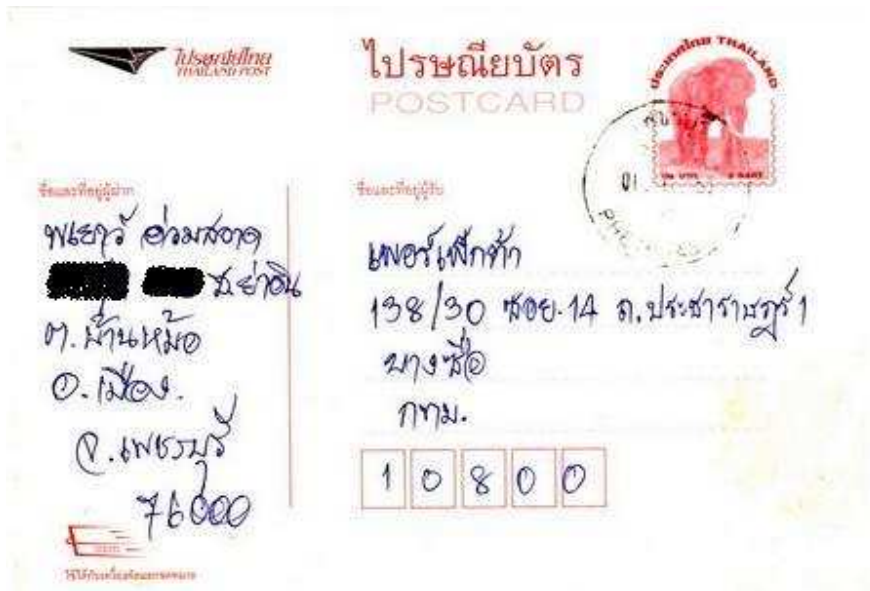 ไปรษณีย์ไทย
THAILAND POST
ไปรษณียบัตร
POSTCARD
ประเทศไทย THAILAND
ชื่อและที่อยู่ผู้ฝาก
พเยาว์ อ่วมสอาด
ซ.ย่าอิน
ต.บ้านหม้อ
อ.เมือง.
จ.เพชรบุรี
76000
ชื่อและที่อยู่ผู้รับ
เพอร์เฟ็กท้า
138/30 ซอย.14 ถ.ประชาราษฎร์ 1
บางซื่อ
กทม.
10800